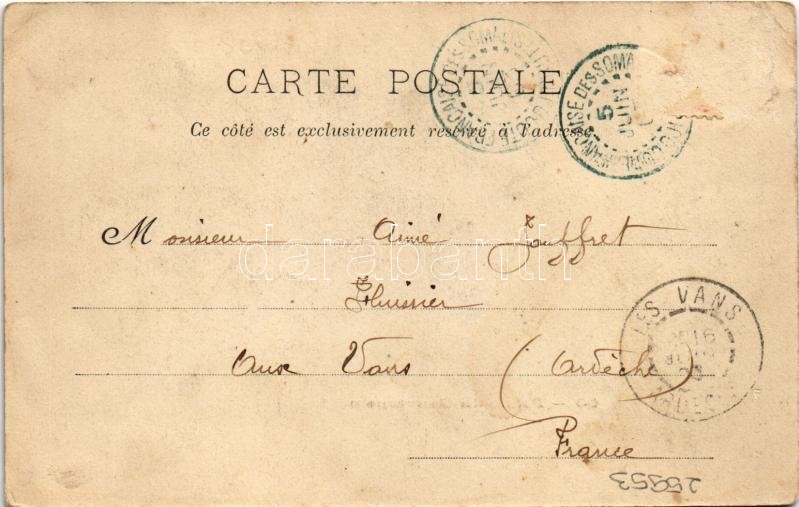 CARTE POSTALE
Ce côté est exclusivement réservé à l'adresse
CÔTE FRANÇAISE DES SOMALIS
FRANÇAISE DES SOMA
5
JUIN
Monsieur Aimé Jouffret
Huissier
Aux Vans (Ardèche)
France
LES VANS
16
darabanth
259553